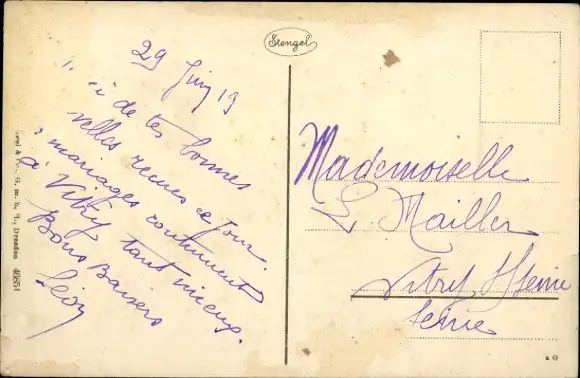 29 Juin 19
Merci de tes bonnes
nouvelles reçues ce jour.
mariages continuent
à Vitry tant mieux.
Bons Baisers
Léon
Stengel
Mademoiselle
L. Mailler
Vitry s/Seine
Seine
& Co., G. m. b. H., Dresden 46851